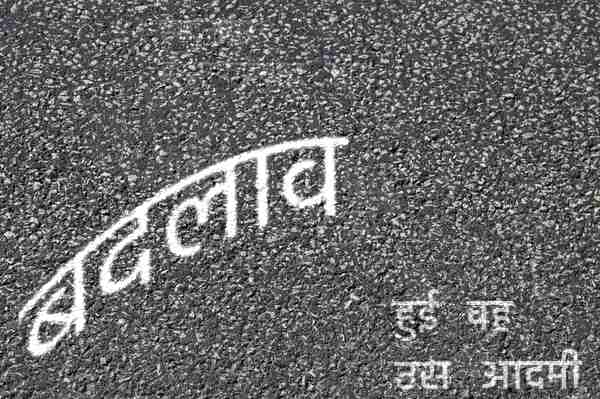 बदलाव
हुई वह
उस आदमी